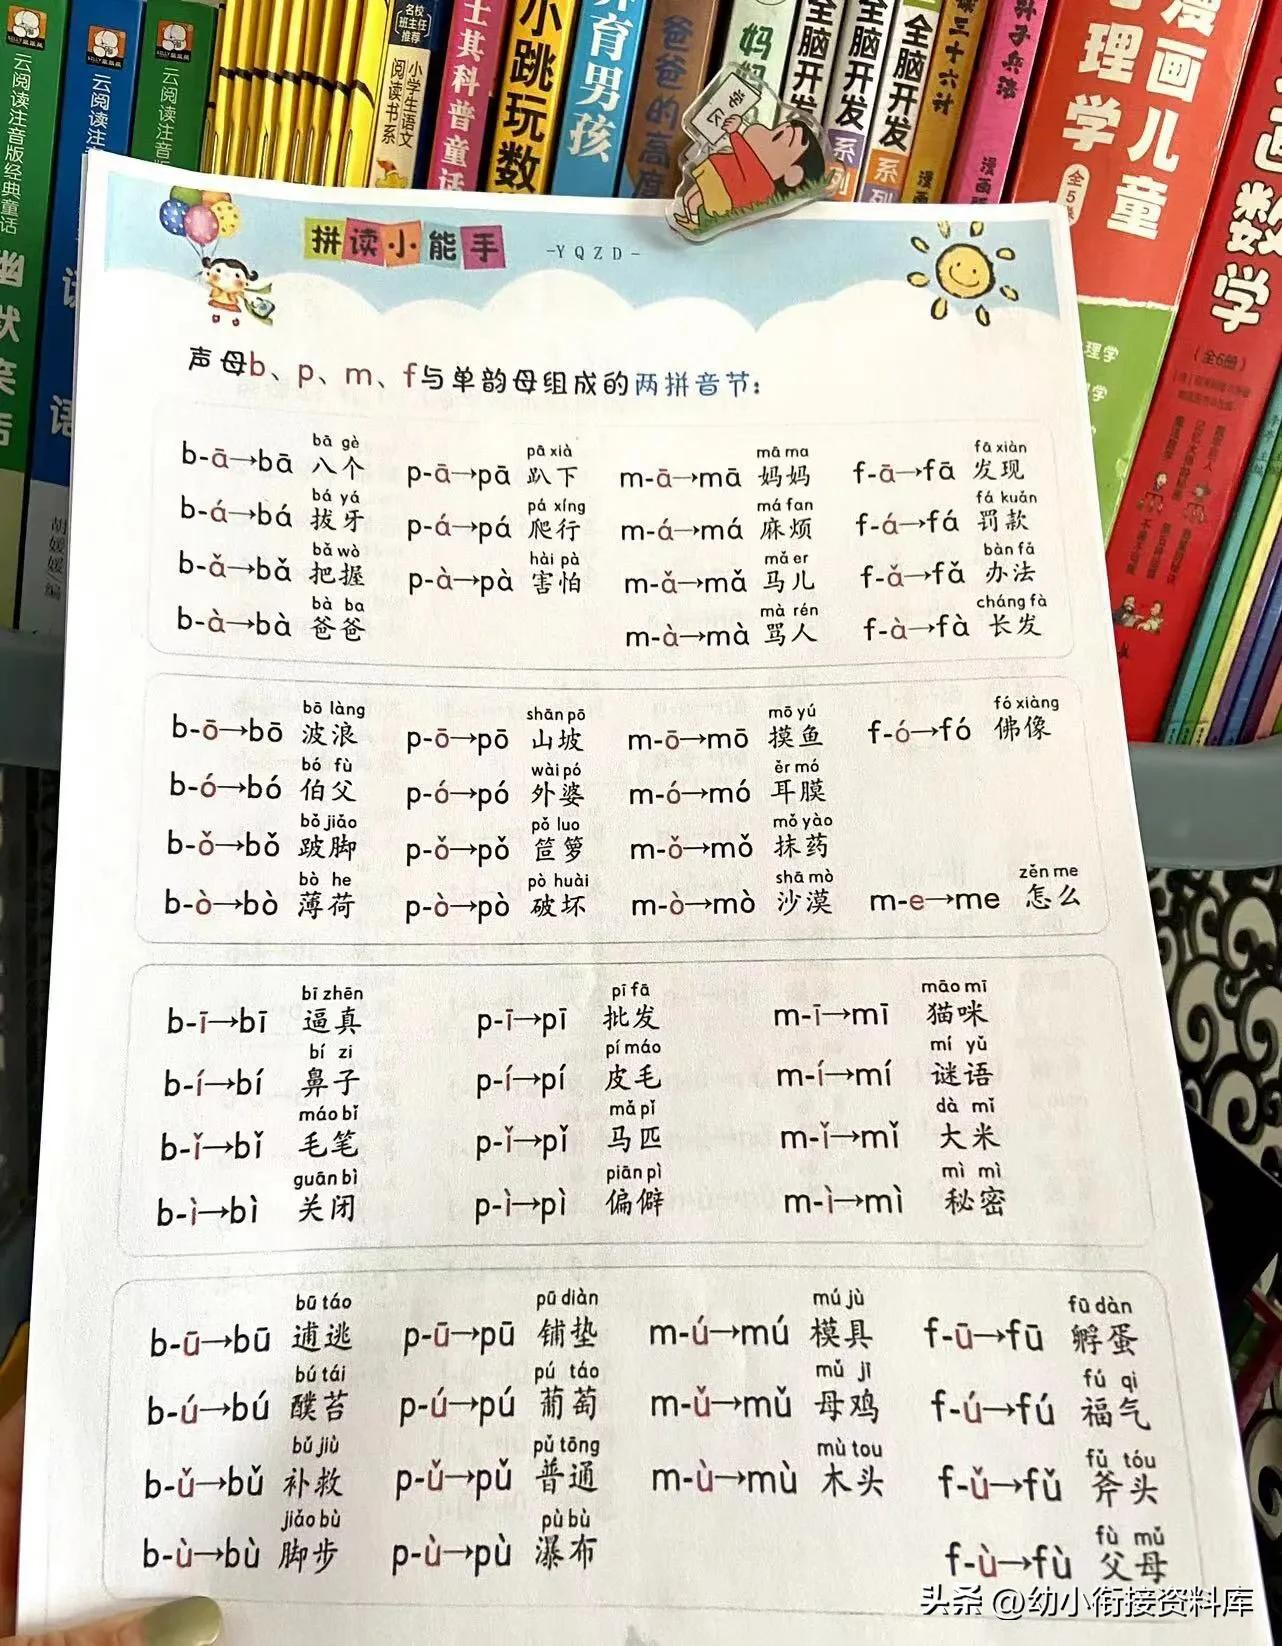 云阅读注音版经典童话
云阅读注音版
云阅读注音版
名校
班主任
推荐
小学生语文
阅读书系
士其科普童话
小跳玩数
养育男孩
爸爸的高度
妈妈
全脑开发
系列
全脑开发
系列
全脑开发
三十六计
漫画
孙子兵法
漫画版
漫画儿童
心理学
全5册
数学
(全6册)
幽默笑话
胡媛媛/编
学习
拼读小能手
-YQZD-
声母b、p、m、f与单韵母组成的两拼音节:
bā gè pā xià mā ma fā xiàn
b-ā→bā 八个 p-ā→pā 趴下 m-ā→mā 妈妈 f-ā→fā 发现
bá yá pá xíng má fan fá kuán
b-á→bá 拔牙 p-á→pá 爬行 m-á→má 麻烦 f-á→fá 罚款
bǎ wò hài pà mǎ er bàn fǎ
b-ǎ→bǎ 把握 p-à→pà 害怕 m-ǎ→mǎ 马儿 f-ǎ→fǎ 办法
bà ba mà rén cháng fà
b-à→bà 爸爸 m-à→mà 骂人 f-à→fà 长发
bō làng shān pō mō yú fó xiàng
b-ō→bō 波浪 p-ō→pō 山坡 m-ō→mō 摸鱼 f-ó→fó 佛像
bó fù wài pó ěr mó
b-ó→bó 伯父 p-ó→pó 外婆 m-ó→mó 耳膜
bǒ jiǎo pǒ luo mǒ yào
b-ǒ→bǒ 跛脚 p-ǒ→pǒ 笸箩 m-ǒ→mǒ 抹药
bò he pò huài shā mò zěn me
b-ò→bò 薄荷 p-ò→pò 破坏 m-ò→mò 沙漠 m-e→me 怎么
bī zhēn pī fā māo mī
b-ī→bī 逼真 p-ī→pī 批发 m-ī→mī 猫咪
bí zi pí máo mí yǔ
b-í→bí 鼻子 p-í→pí 皮毛 m-í→mí 谜语
máo bǐ mǎ pǐ dà mǐ
b-ǐ→bǐ 毛笔 p-ǐ→pǐ 马匹 m-ǐ→mǐ 大米
guān bì piān pì mì mì
b-ì→bì 关闭 p-ì→pì 偏僻 m-ì→mì 秘密
bū táo pū diàn mú jù fū dàn
b-ū→bū 逋逃 p-ū→pū 铺垫 m-ú→mú 模具 f-ū→fū 孵蛋
bú tái pú táo mǔ jī fú qi
b-ú→bú 醭苔 p-ú→pú 葡萄 m-ǔ→mǔ 母鸡 f-ú→fú 福气
bǔ jiù pǔ tōng mù tou fǔ tóu
b-ǔ→bǔ 补救 p-ǔ→pǔ 普通 m-ù→mù 木头 f-ǔ→fǔ 斧头
jiǎo bù pù bù fù mǔ
b-ù→bù 脚步 p-ù→pù 瀑布 f-ù→fù 父母
头条 @幼小衔接资料库